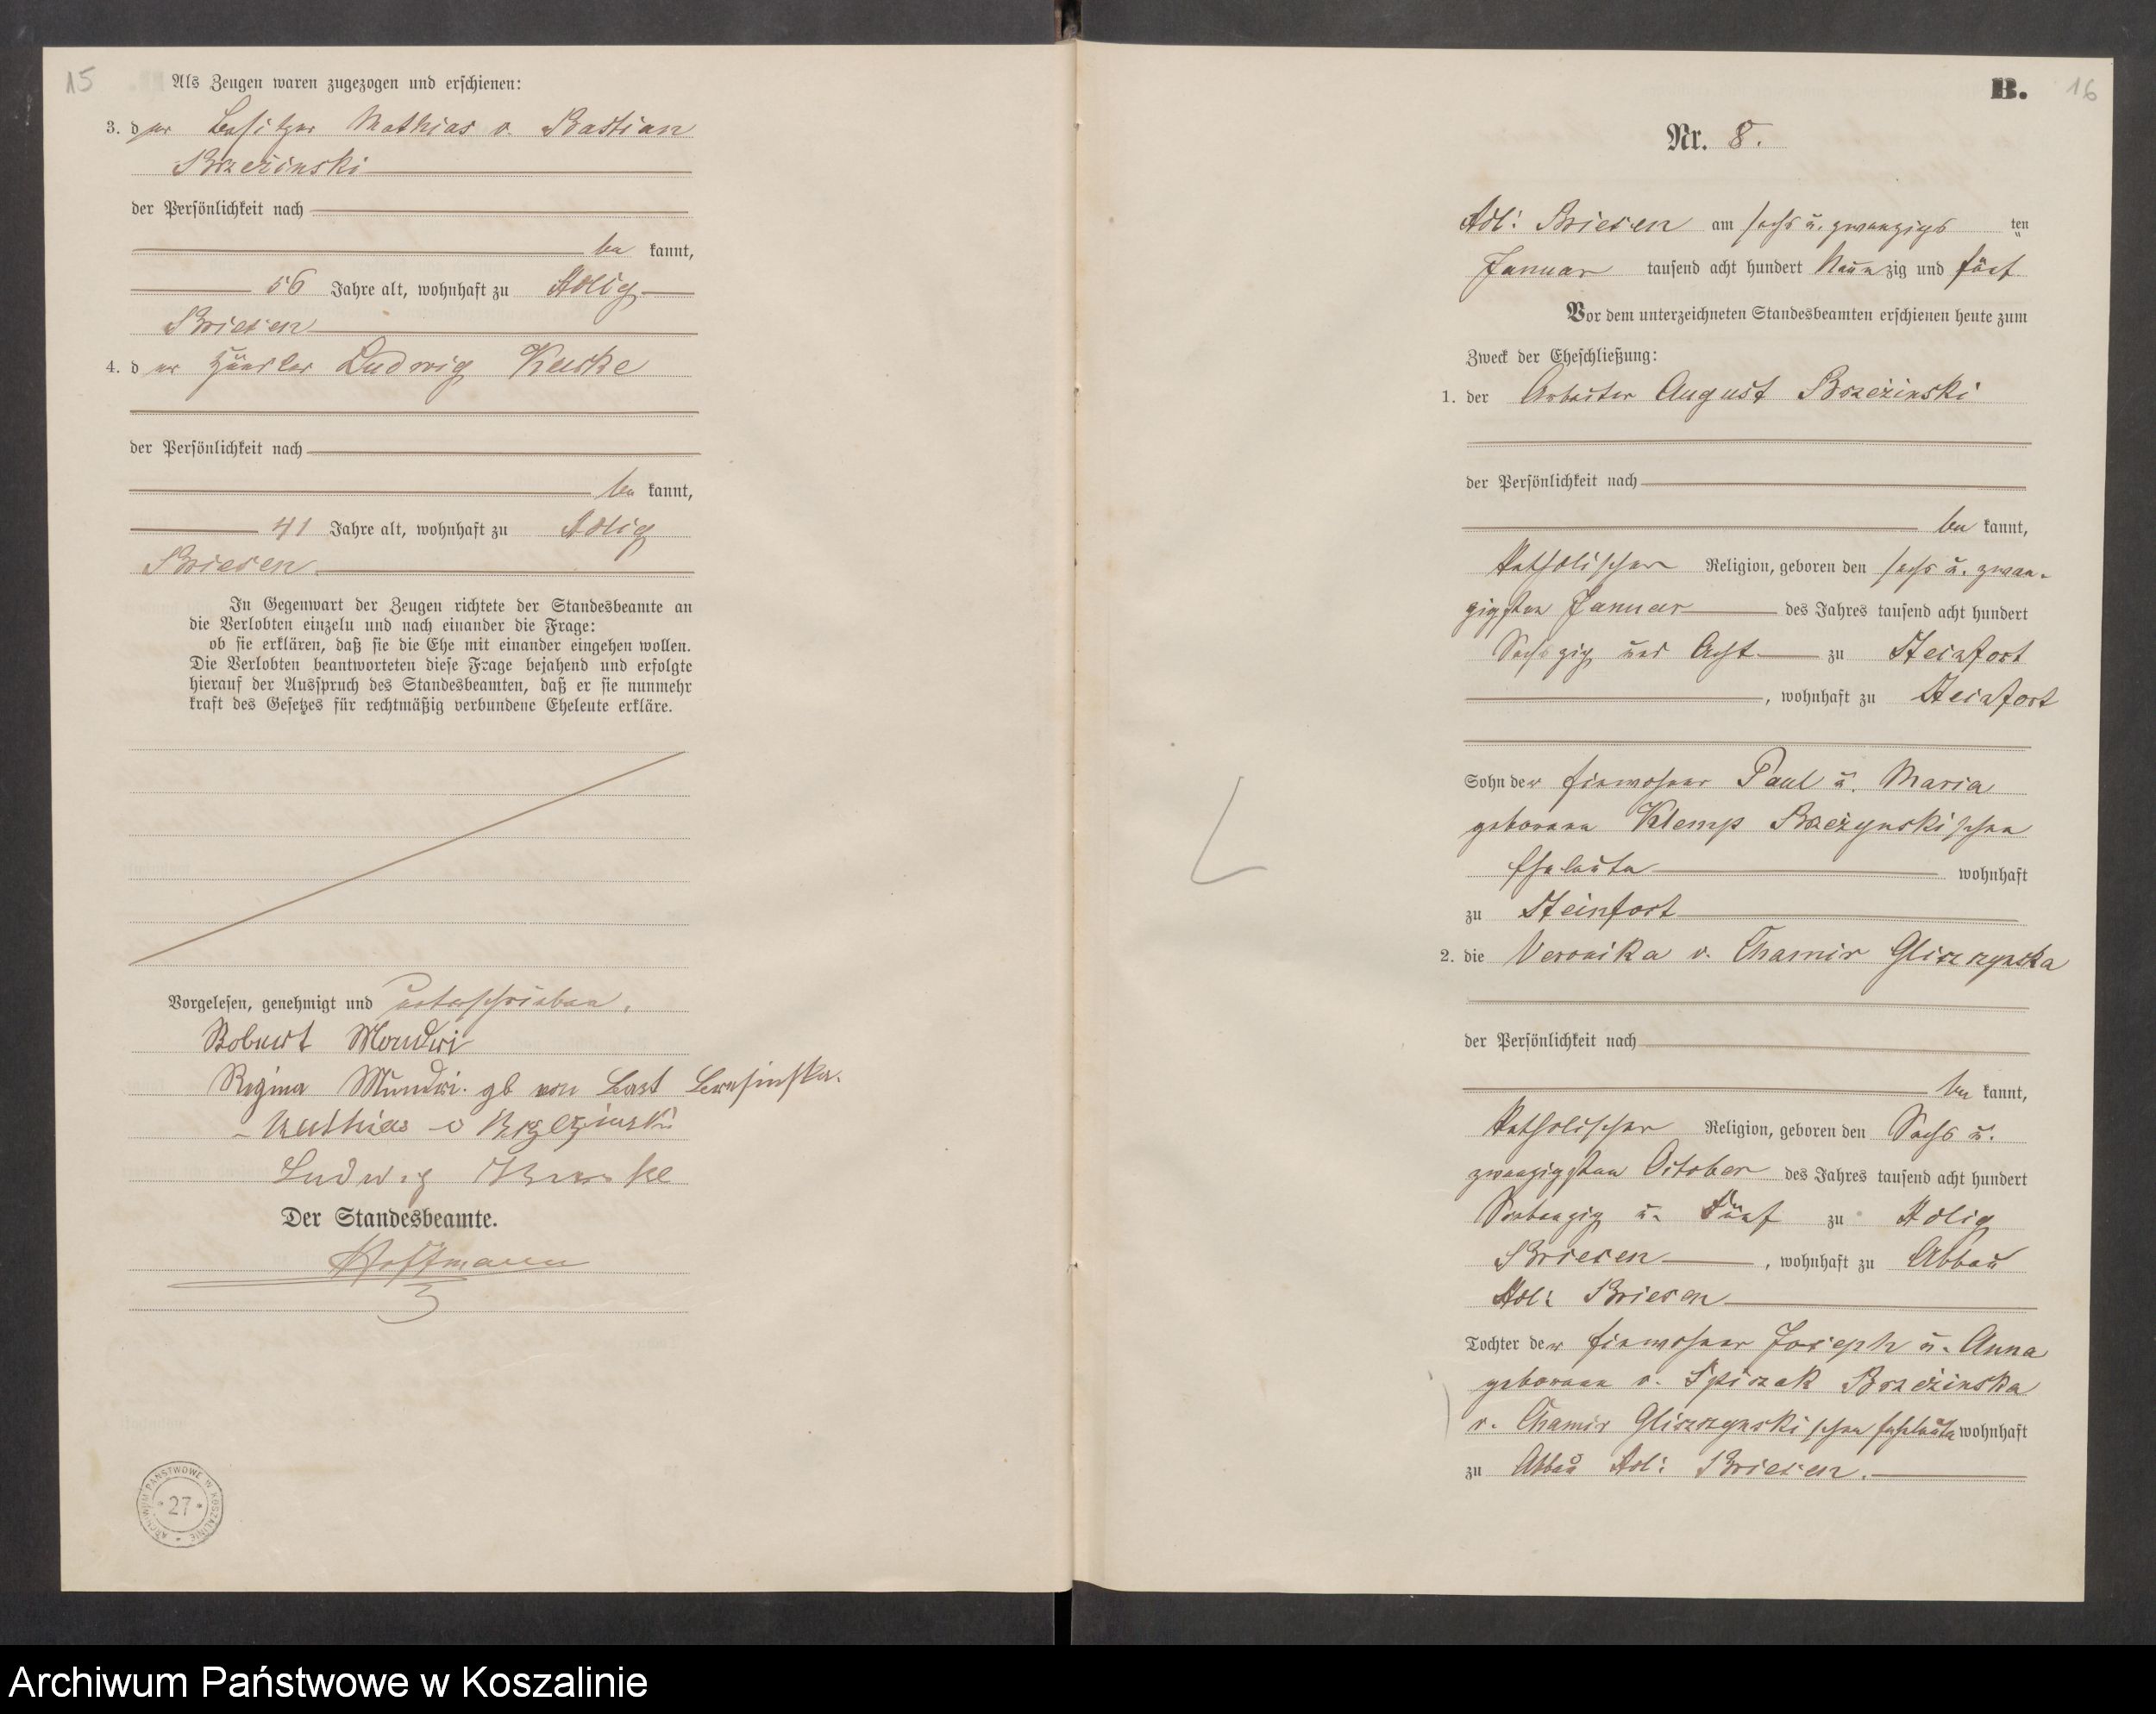 15
Als Zeugen waren zugezogen und erschienen:
3. der Besitzer Mathias v. Bastian
Brzezinski
der Persönlichkeit nach
be kannt,
56 Jahre alt, wohnhaft zu Adlig
Briesen
4. der Häusler Ludwig Kuske
der Persönlichkeit nach
be kannt,
41 Jahre alt, wohnhaft zu Adlig
Briesen
In Gegenwart der Zeugen richtete der Standesbeamte an
die Verlobten einzeln und nach einander die Frage:
ob sie erklären, daß sie die Ehe mit einander eingehen wollen.
Die Verlobten beantworteten diese Frage bejahend und erfolgte
hierauf der Ausspruch des Standesbeamten, daß er sie nunmehr
kraft des Gesetzes für rechtmäßig verbundene Eheleute erkläre.
Vorgelesen, genehmigt und unterschrieben.
Robert Mondri
Regina Mundri. gb von
Mathias v Brzezinski
Ludwig
Der Standesbeamte.
Hoffmann
ARCHIWUM PAŃSTWOWE W KOSZALINIE
* 27 *
B. 16
Nr. 8.
Adl: Briesen am sechs u. zwanzigs ten
Januar tausend acht hundert Neunzig und fünf
Vor dem unterzeichneten Standesbeamten erschienen heute zum
Zweck der Eheschließung:
1. der Arbeiter August Brzezinski
der Persönlichkeit nach
be kannt,
katholischer Religion, geboren den sechs u. zwan-
zigsten Januar des Jahres tausend acht hundert
Sechszig und Acht zu Steinfort
, wohnhaft zu Steinfort
Sohn der Einwohner Paul u. Maria
geborene Klemp Brzezynskischen
Eheleute wohnhaft
zu Steinfort
2. die Veronika v. Chamir Gliszczynska
der Persönlichkeit nach
be kannt,
katholischer Religion, geboren den Sechs u.
zwanzigsten October des Jahres tausend acht hundert
Siebenzig u. Fünf zu Adlig
Briesen, wohnhaft zu Abbau
Adl: Briesen
Tochter der Einwohner Joseph u. Anna
geborene v. Spiczak Brzezinska
v. Chamir Gliszczynskischen Eheleute wohnhaft
zu Abbau Adl: Briesen.
Archiwum Państwowe w Koszalinie